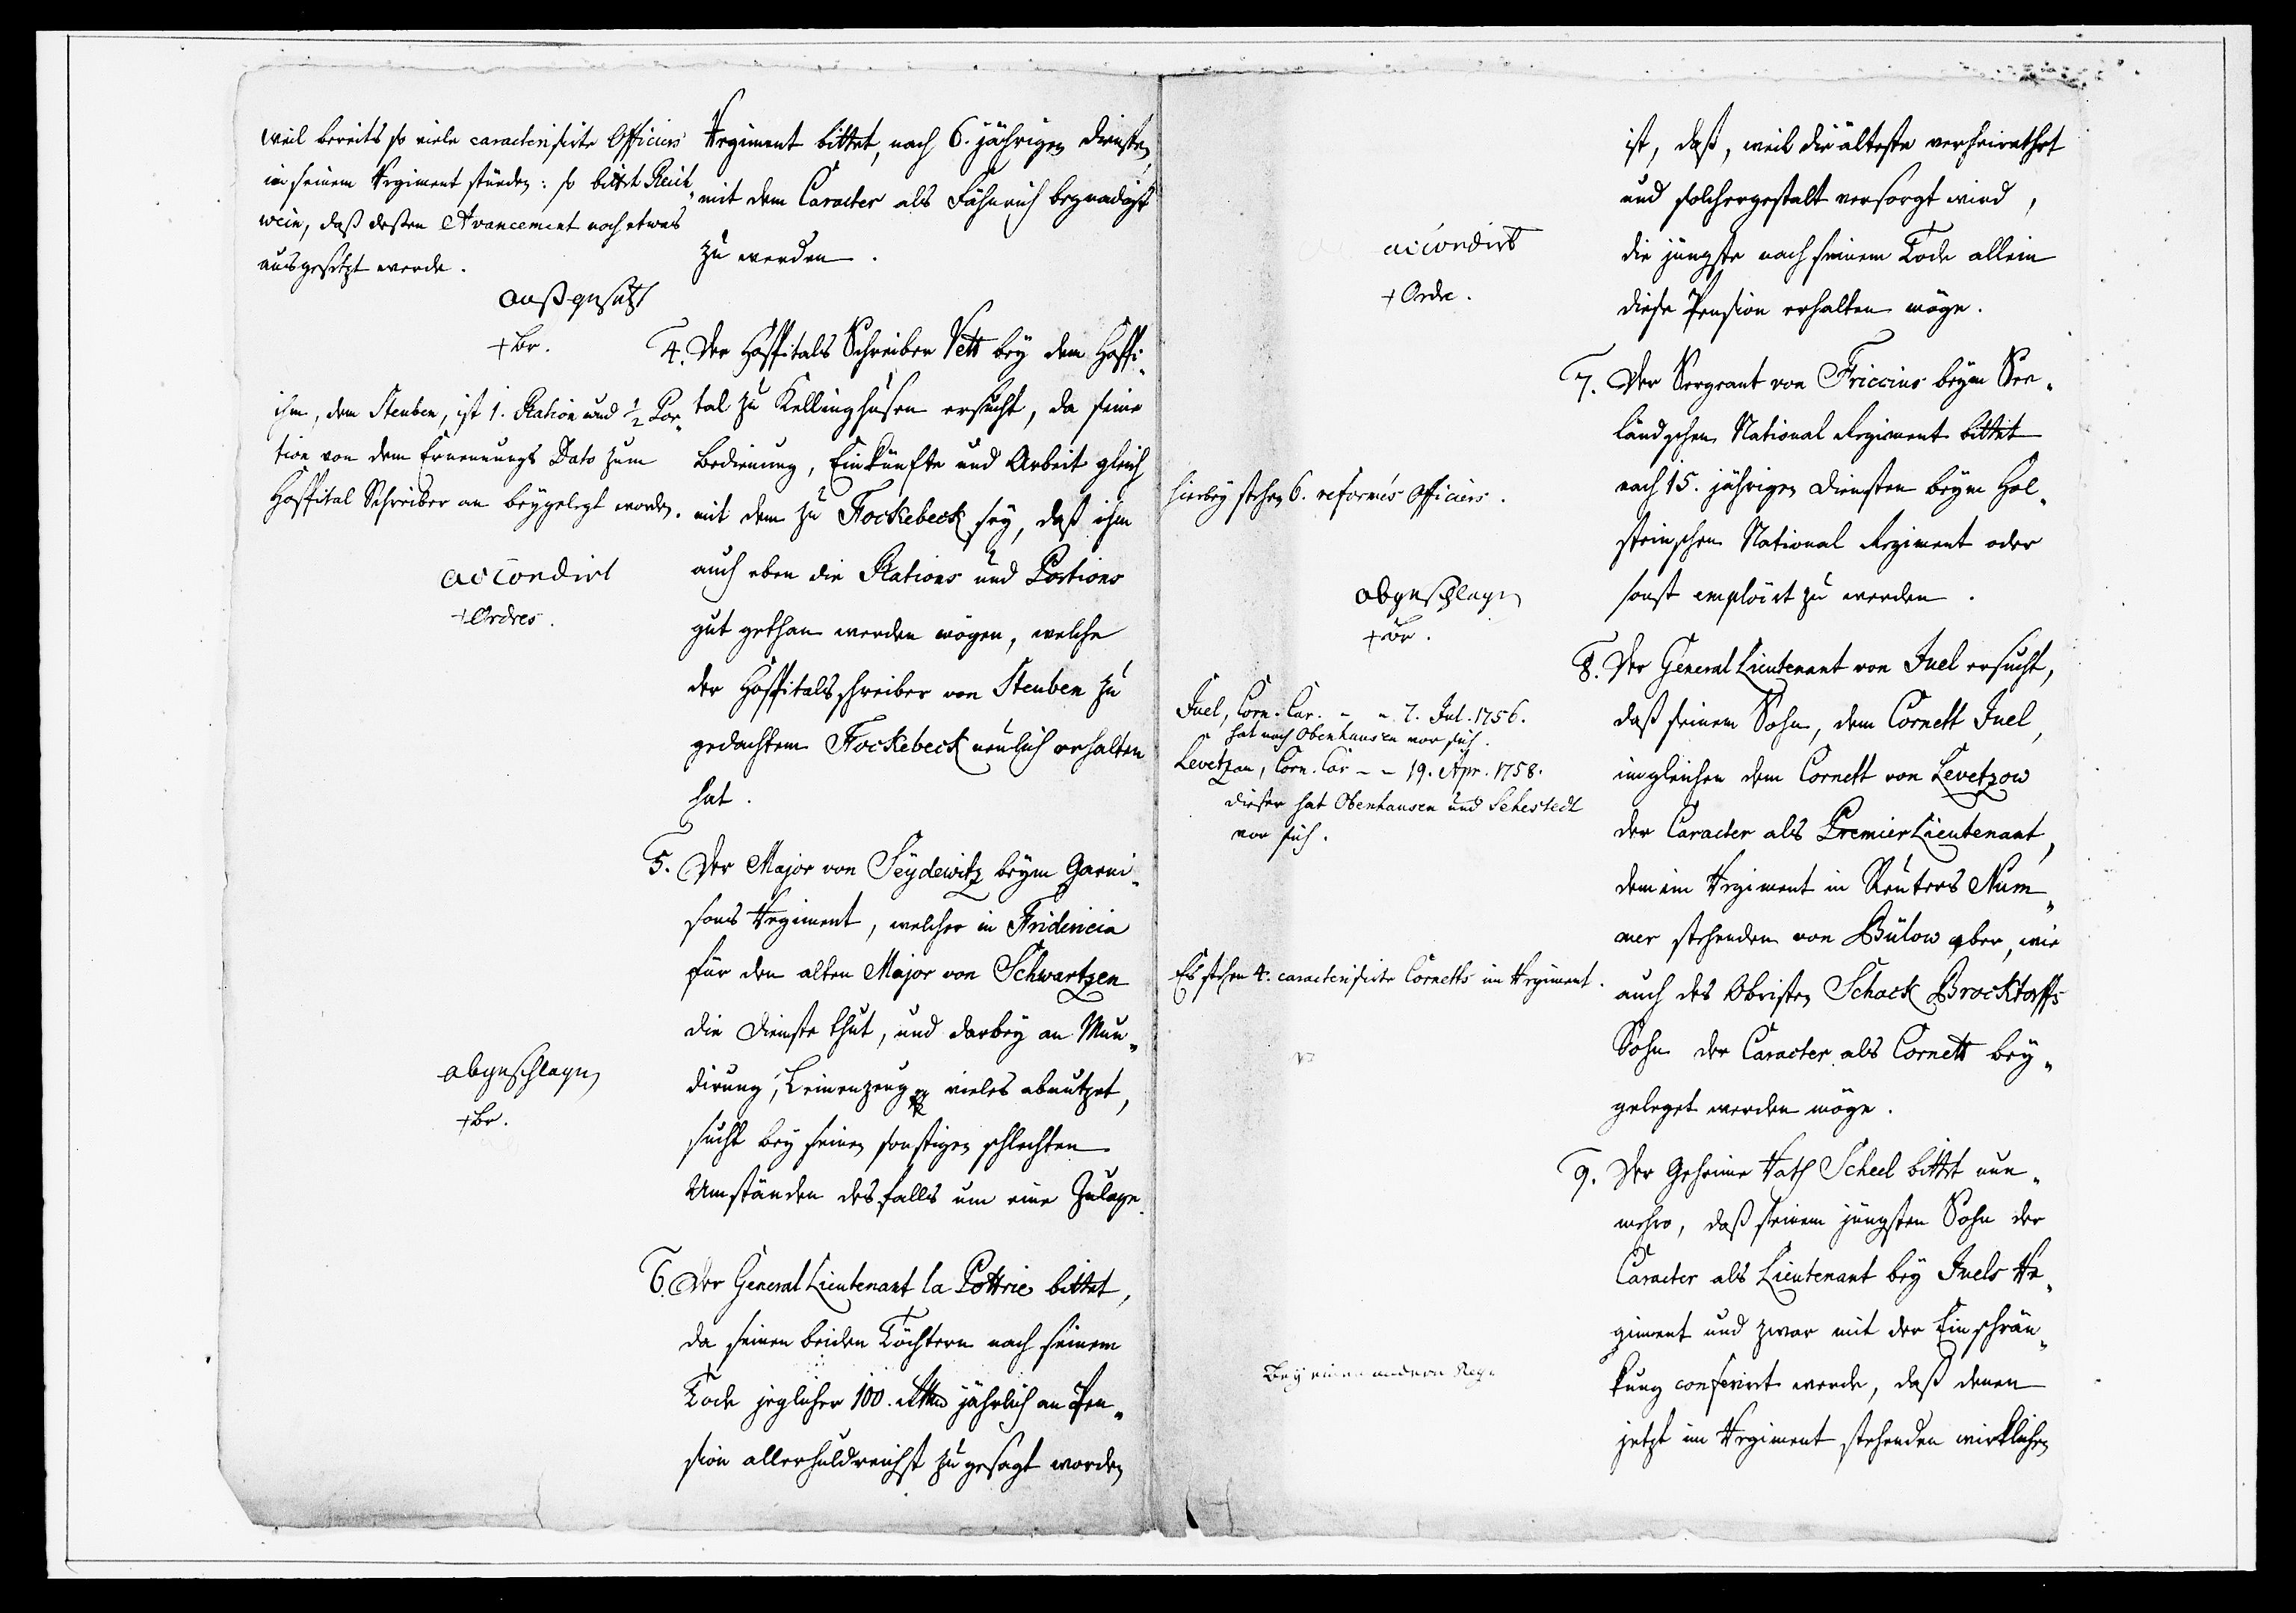 weil bereits so viele caracterisirte Officiers
in seinem Regiment stünden: so bittet Reich„
wein, daß deßen Avancement noch etwas
ausgesetzt werde.
außgesetzt
+ Br.
ihm, dem Steuben, ist 1. Ration und ½ Por„
tion von dem Ernennungs Dato zum
Hospital Schreiber an beygelegt worden.
accordirt
+ Ordres.
abgeschlagen
+ Br.
Regiment bittet, nach 6. jährigen Diensten,
mit dem Caracter als Fähnrich begnadigt
zu werden.
4. Der Hospitals Schreiber Vett bey dem Hospi„
tal zu Kellinghusen ersucht, da seine
Bedienung, Einkünfte und Arbeit gleich
mit dem zu Fockebeck sey, daß ihm
auch eben die Rations und Portions
gut gethan werden mögen, welche
der Hospitalsschreiber von Steuben zu
gedachtem Fockebeck neulich erhalten
hat.
5. Der Major von Seydewitz beym Garni„
sons Regiment, welcher in Fridericia
für den alten Major von Schwartzen
die Dienste thut, und darbey an Mun„
dirung, Leinenzeug vieles abnutzet,
sucht bey seinen sonstigen schlechten
Umständen desfalls um eine Zulage.
6. Der General Lieutenant la Pottrie bittet,
da seinen beiden Töchtern nach seinem
Tode jeglicher 100. Rthlr jährlich an Pen„
sion allerhuldreichst zugesagt worden
accordirt
+ Ordre.
hierbey stehen 6. reformés Officiers.
abgeschlagen
+ Br.
Juel, Corn. Car. - - 7. Jul. 1756.
hat noch Obenhausen vor sich.
Levetzau, Corn. Car - - 19. Apr. 1758.
dieser hat Obenhausen und Sehestedt
vor sich.
Es stehen 4. caracterisirte Cornetts im Regiment.
Bey einen andern Reg.
ist, daß, weil die älteste verheirathet
und solchergestalt versorgt wird,
die jüngste nach seinem Tode allein
diese Pension erhalten möge.
7. Der Sergeant von Friccius beym See„
ländschen National Regiment bittet
nach 15. jährigen Diensten beym Hol„
steinschen National Regiment oder
sonst emploirt zu werden.
8. Der General Lieutenant von Juel ersucht,
daß seinem Sohn, dem Cornett Juel,
imgleichen dem Cornett von Levetzow
der Caracter als Premier Lieutenant,
dem im Regiment in Reuters Num„
mer stehenden von Bülow aber, wie
auch des Obristen Schack Brocktorffs
Sohn der Caracter als Cornett bey„
geleget werden möge.
9. Der Geheime Rath Scheel bittet nun„
mehro, daß seinem jüngsten Sohn der
Caracter als Lieutenant bey Juels Re„
giment und zwar mit der Einschrän„
kung conferirt werde, daß denen
jetzt im Regiment stehenden wirklichen